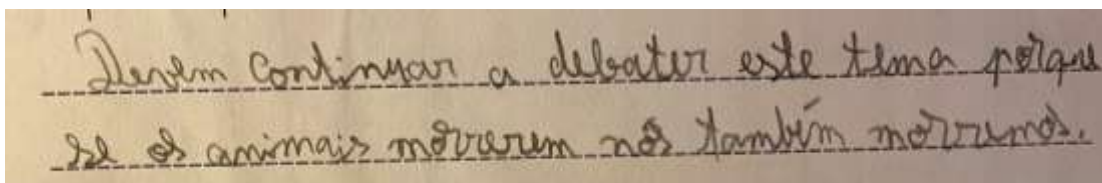 Devem continuar a debater este tema porque
se os animais morrerem nós também morremos.